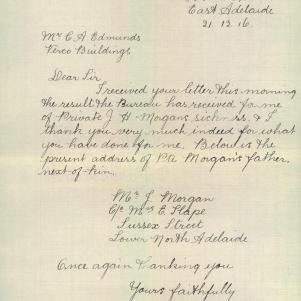 East Adelaide
21.12.16
Mr C A Edmunds
Verco Buildings
Dear Sir,
I received your letter this morning
the result the Bureau has received for me
of Private J H Morgans sickness. & I
thank you very much indeed for what
you have done for me. Below is the
present address of Pte Morgan's father.
next-of-kin.
Mr J Morgan
C/o Mrs E Slape
Sussex Street
Lower North Adelaide
Once again thanking you
Yours faithfully